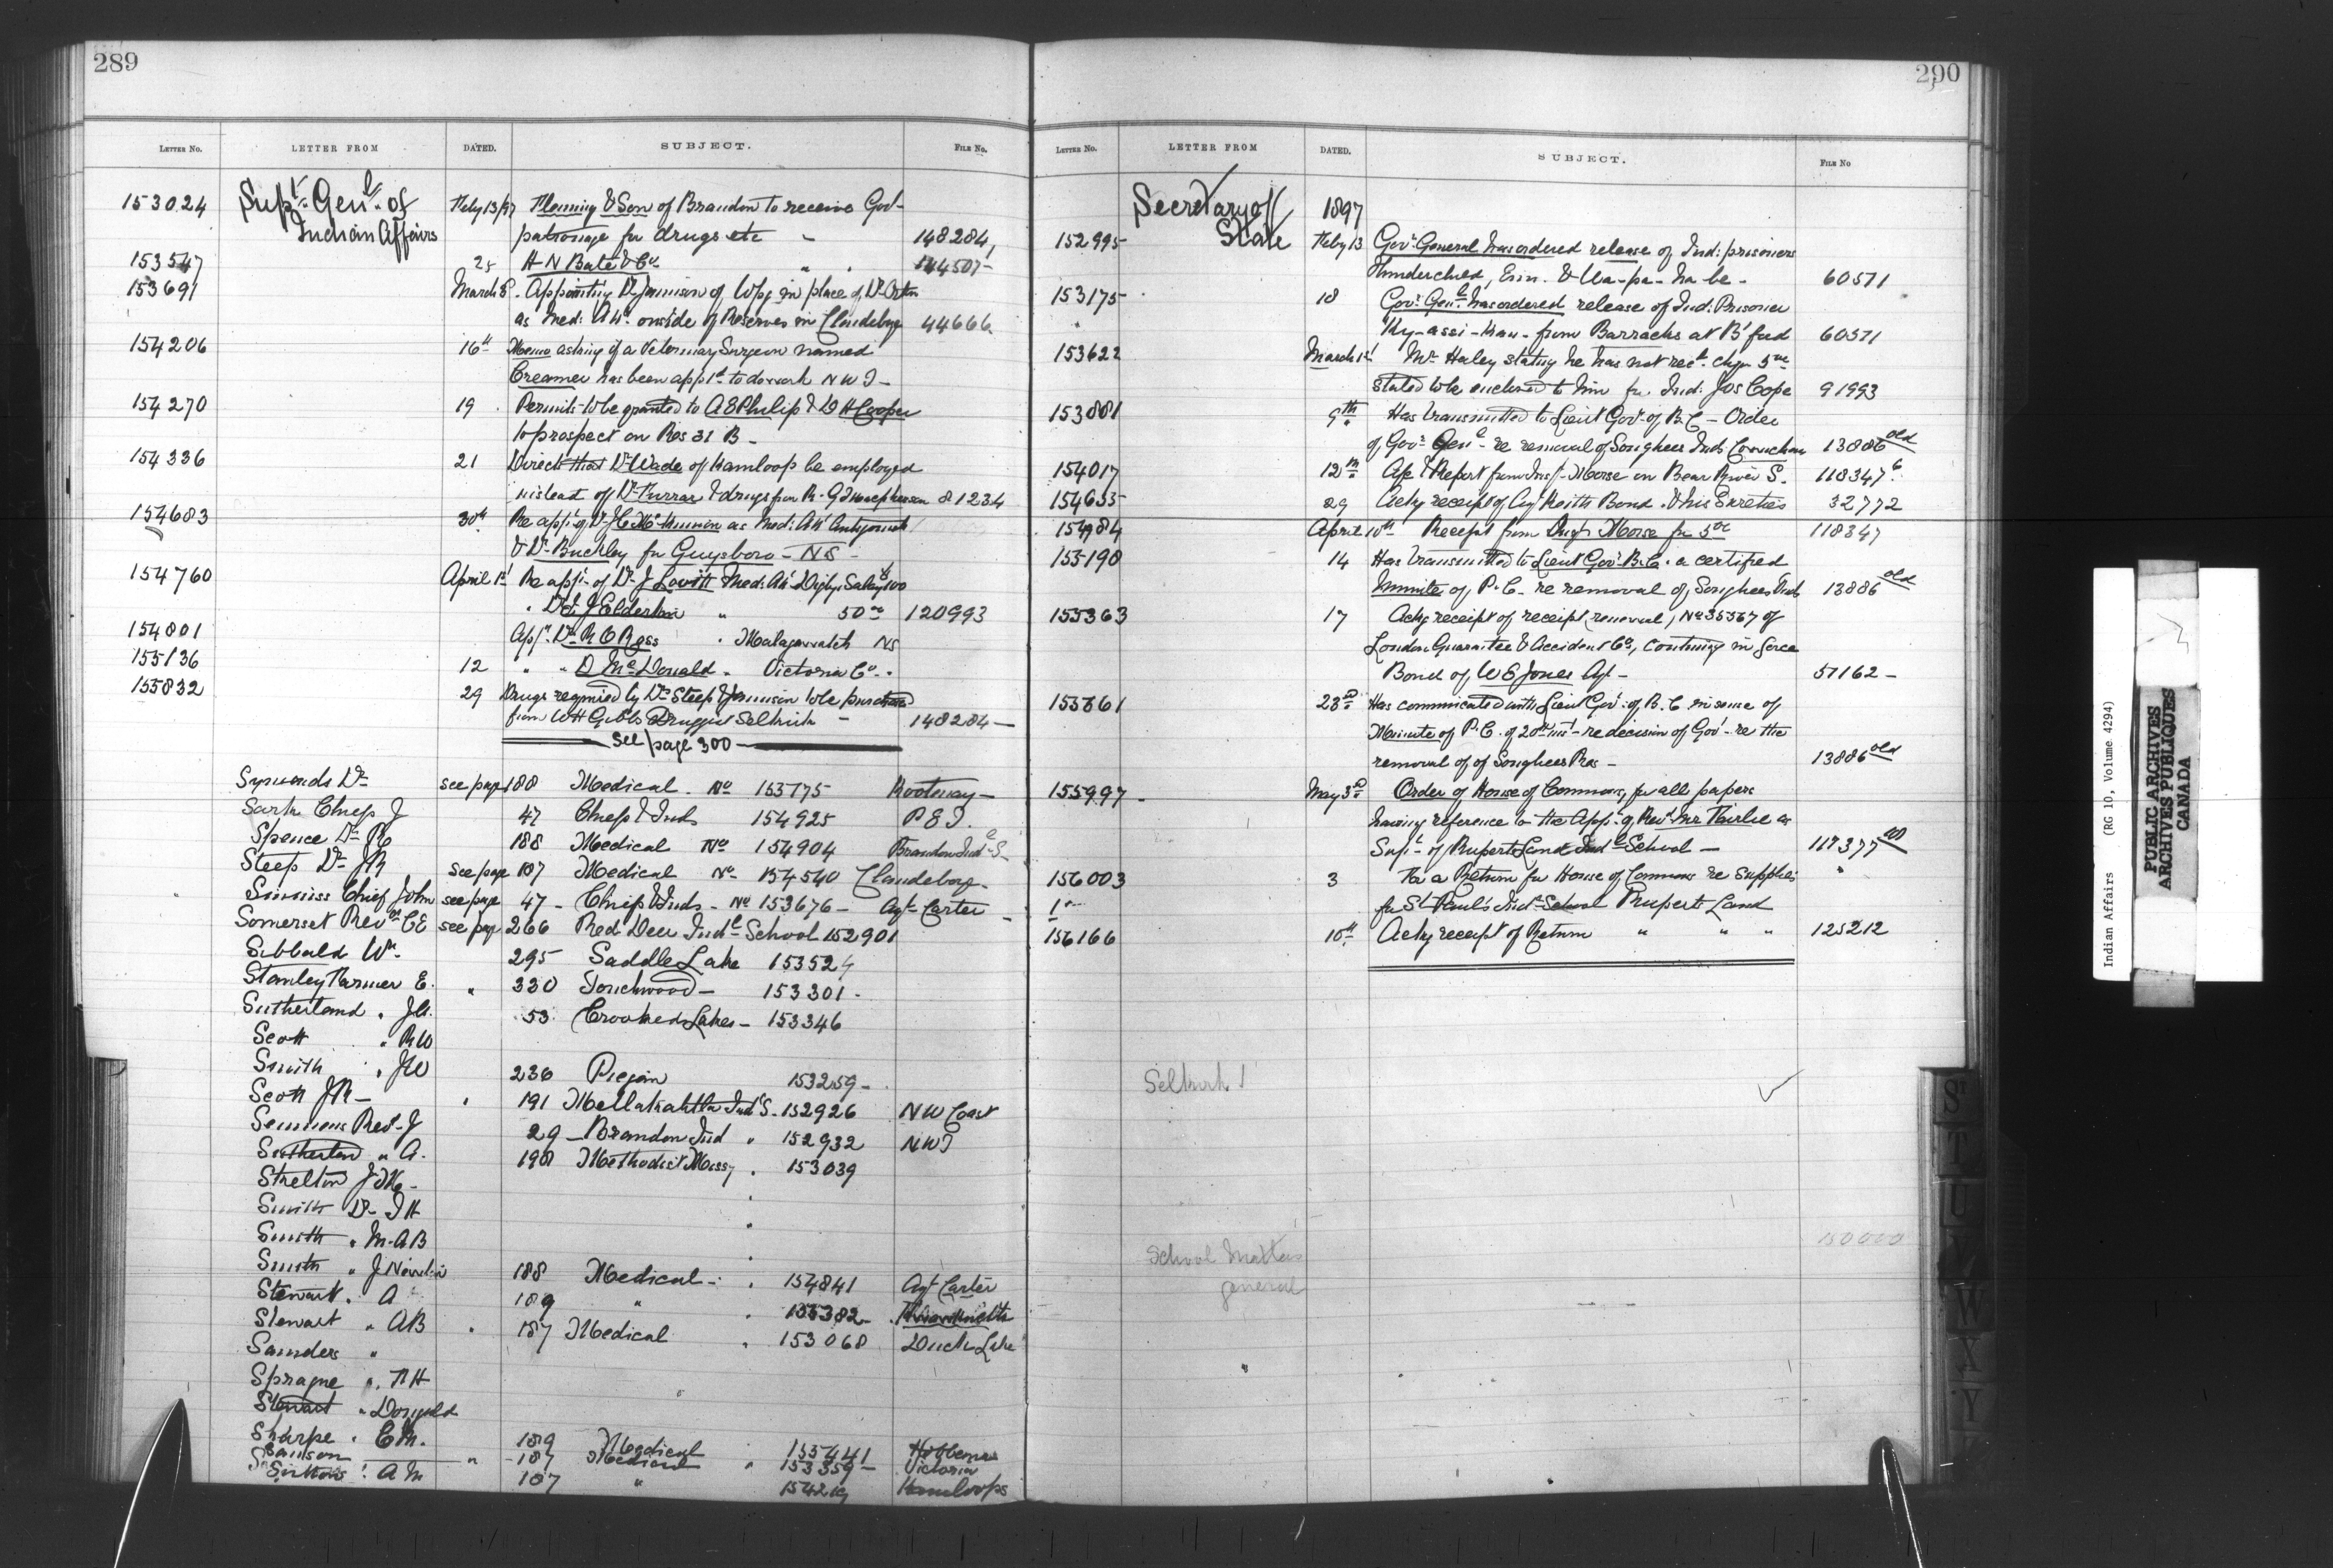 289
LETTER No. LETTER FROM DATED. SUBJECT. FILE No.
153024 Supt. Genl. of Feby 13/97 Fleming & Son of Brandon to receive Gov-
Indian Affairs patronage for drugs etc - 148284
153547 25 H N Bate & Co. " " 144507-
153691 March 8. Appointing Dr Jamison of Wpg in place of Dr Orton
as Med: Att. outside of Reserves in Clandeboye 44666
154206 16th Memo asking if a Veterinary Surgeon named
Creamer has been apptd to do work N W T -
154270 19 Permits to be granted to A E Philip & D H Cooper
to prospect on Res 31 B -
154336 21 Directs that Dr Wade of Kamloops be employed
instead of Dr Furrar & drugs from 81234
154683 30th Re appt. of Dr as Med: Att
& Dr Buckley for Guysboro - NS -
154760 April 1st Re appt. of Dr J Lovitt Med: Att Digby Salary 100
Dr 50 00 120993
154801 Appt. Dr R C Ross Malagawatch NS
155136 12 " " D McDonald - Victoria Co. -
155832 29 Drugs required by Drs Steep & Jamison to be purchased
from W H Gibbs Druggist Selkirk - 148284 -
See page 300
Symonds Dr see page 188 Medical - No 155175 Kootenay -
Sark Chief J 47 Chiefs & Inds 154925 P E I.
Spence Dr 188 Medical No 154904 Brandon Indl S -
Steep Dr J R see page 187 Medical No 154540 Clandeboye -
Chief John see page 47 - Chiefs & Inds - No 153676 - Agt. Carter -
Somerset Revd. C E see page 266 Red Deer Indl School 152901
Sibbald W. 295 Saddle Lake 153524
Stanley Farmer E. " 330 Touchwood - 153301 -
Sutherland " J H. 53 Crooked Lakes - 153346
Scott " R W
Smith " J W 236 Piegan 153259 -
Scott J R - " 191 Metlakahtla Indl S. - 152926 N W Coast
Semmens Rev. J 29 - Brandon Ind " 152932 N W T
Sutherland " A. 198 Methodist Missy " 153039
Skelton
Smith Dr
Smith " M. A B
Smith " J 188 Medical - " 154841 Agt Carter
Stewart " A 189 " " 155382 -
Stewart " A B " 187 Medical " 153068 Duck Lake
Saunders "
Sprague "
Stewart "
Sharpe " 189 Medical 155441 Hobbema
Sanson " 187 Medical " 153359 - Victoria
" A M 187 " 154219 Kamloops
290
LETTER No. LETTER FROM DATED. SUBJECT. FILE No
Secretary of 1897
152995 State Feby 13 Govr. General has ordered release of Ind: prisoners
Thunderchild, & Wa-pa-ha-be - 60571
153175 18 Govr. Genl. has ordered release of Ind: Prisoner
Ky-assi-kan - from Barracks at B'ford 60571
153622 March 1st Mr Haley stating he has not recd. chqu 5 00
stated to be enclosed to him for Ind: Jos Cope 91993
153881 9th. Has transmitted to Lieut Govr. of B. C - Order
of Govr. Genl - re removal of Songhees Inds Cowichan 13886 old
154017 12th Report from Inspt. Morse on Bear River S. 118347
154635 29 Ackg receipt of Agt Keith Bond & his Sureties 32772
154984 April 10th Receipt from Inspr Morse for 5 00 118347
155190 14 Has transmitted to Lieut Govr. B. C. a certified
Minute of P. C - re removal of Songhees Inds 13886 old
155363 17 Ackg receipt of receipt (renewal) No 35567 of
London Guarantee & Accident Co, continuing in force
Bond of W E Jones Agt - 57162 -
155861 23rd Has communicated with Lieut Gov: of B. C in sense of
Minute of P. C. of 20th inst - re decision of Govt - re the
removal of of Songhees Res - 13886 old
155997 - May 3rd Order of House of Commons, for all papers
having reference to the Appt. of Revd. Mr Fairlie as
Supt - of Ruperts Land Indl School - 117377
156003 3 For a Return for House of Commons re supplies "
for St Paul's Indl School Ruperts Land
156166 10th Ackg receipt of Return " " " 125212
Selkirk
School Matters
general
150000
St
T
U
V
W
X
Y
Indian Affairs (RG 10, Volume 4294)
PUBLIC ARCHIVES
ARCHIVES PUBLIQUES
CANADA